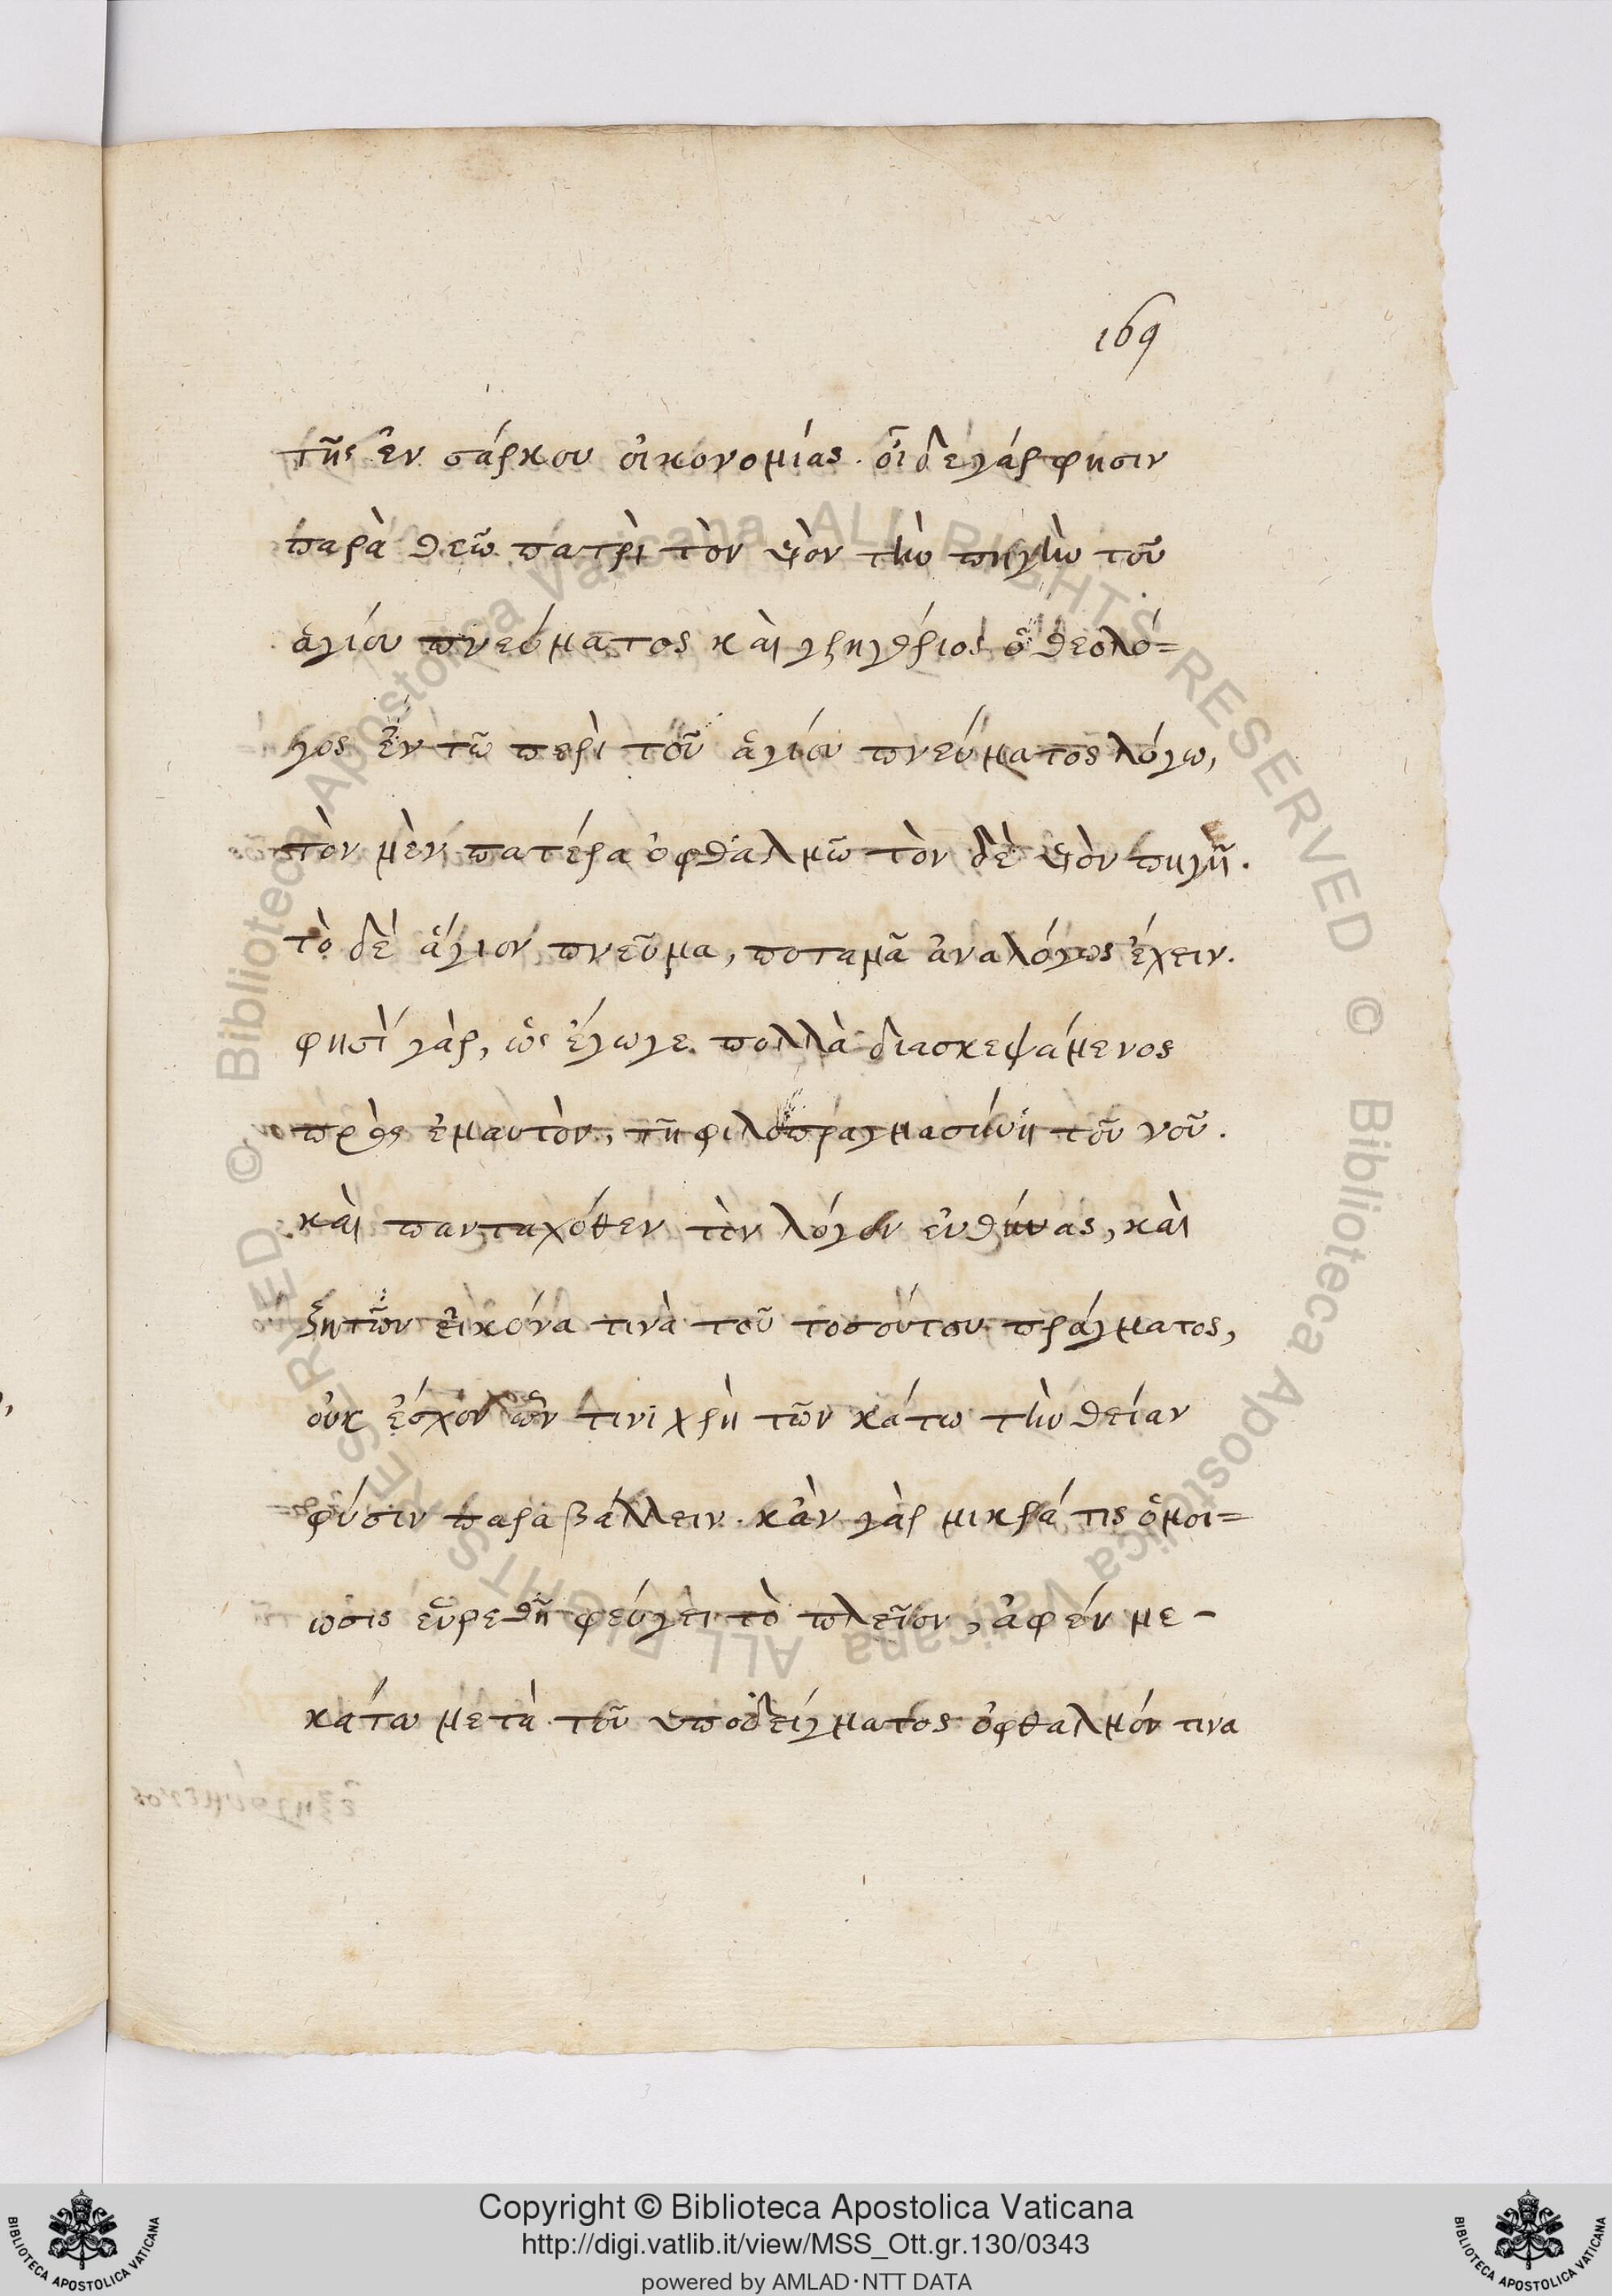 169
τῆς ἐν σάρκου οἰκονομίας. οἶδε γάρ φησιν
παρὰ θεῶ πατρὶ τὸν υἱὸν τὴν πηγὴν τοῦ
ἁγίου πνεύματος καὶ γρηγόριος ὁ θεολό=
γος ἐν τῶ περὶ τοῦ ἁγίου πνεύματος λόγω,
τὸν μὲν πατέρα ὀφθαλμῶ τὸν δὲ υἱὸν πηγῆ.
τὸ δὲ ἅγιον πνεῦμα, ποταμῶ ἀναλόγως ἔχειν.
φησὶ γὰρ, ὡς ἔγωγε πολλὰ διασκεψάμενος
πρὸς ἐμαυτὸν, τῆ φιλοπραγμασύνη τοῦ νοῦ.
καὶ πανταχόθεν τὸν λόγον εὐθύνας, καὶ
ζητῶν εἰκόνα τινὰ τοῦ τοσούτου πράγματος,
οὐκ ἔσχον ὧν τινὶ χρὴ τῶν κάτω τὴν θείαν
φύσιν παραβάλλειν. κἂν γὰρ μικρά τις ὁμοί=
ωσις εὑρεθῆ φεύγει τὸ πλεῖον, ἀφέν με-
κάτω μετὰ τοῦ ὑποδείγματος ὀφθαλμόν τινα
© Biblioteca Apostolica Vaticana ALL RIGHTS RESERVED © Biblioteca Apostolica Vaticana ALL RIGHTS RESERVED
Copyright © Biblioteca Apostolica Vaticana
http://digi.vatlib.it/view/MSS_Ott.gr.130/0343
powered by AMLAD·NTT DATA
BIBLIOTECA APOSTOLICA VATICANA
BIBLIOTECA APOSTOLICA VATICANA